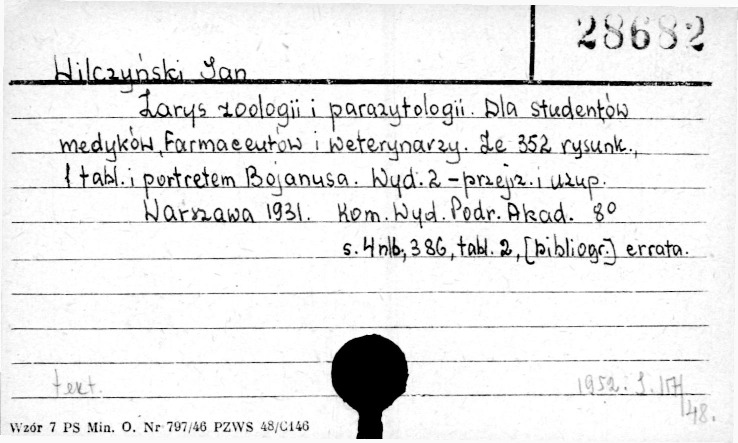 28682
Wilczyński Jan
Zarys zoologii i parazytologii. Dla studentów
medyków, farmaceutów i weterynarzy. Ze 352 rysunk.,
1 tabl. i portretem Bojanusa. Wyd. 2 - przejrz. i uzup.
Warszawa 1931. Kom. Wyd. Podr. Akad. 8⁰
s. 4 nlb, 386, tabl. 2, [bibliogr.] errata.
tekt. 1952. I. 17/
/48.
Wzór 7 PS Min. O. Nr 797/46 PZWS 48/C146